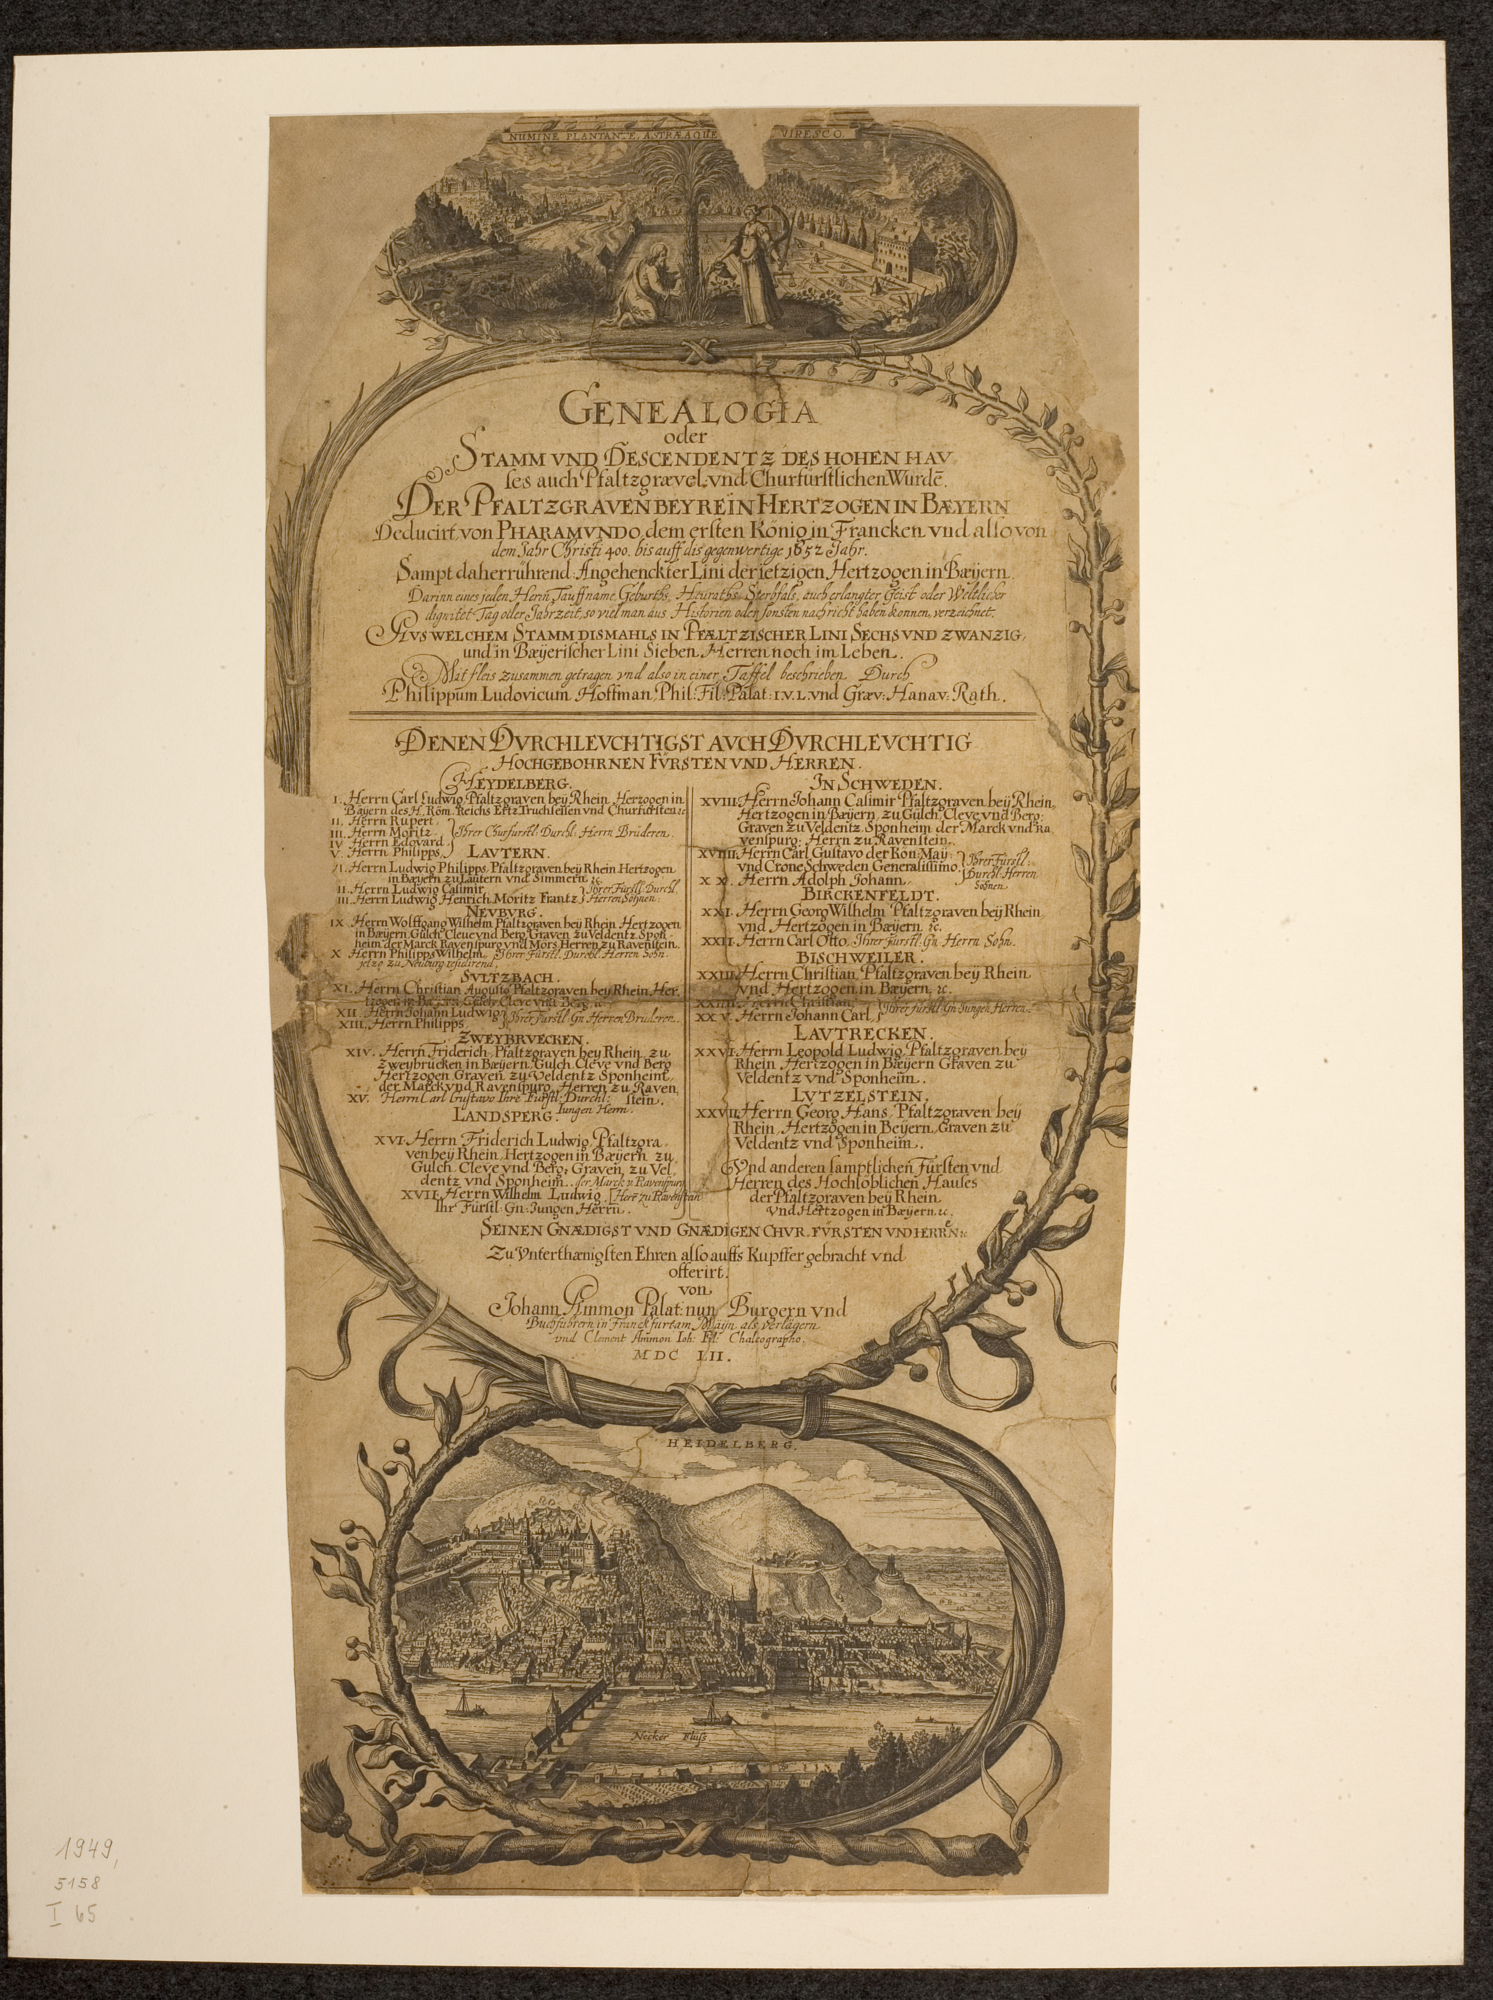 NUMINE PLANTANTE, ASTRÆAQUE VIRESCO.
GENEALOGIA
oder
STAMM VND DESCENDENTZ DES HOHEN HAV
ses auch Pfaltzgrævel. vnd Churfürstlichen Würdē.
DER PFALTZGRAVEN BEY REIN HERTZOGEN IN BÆYERN
Deducirt von PHARAMVNDO dem ersten König in Francken vnd also von
dem Jahr Christi 400. bis auff dis gegenwertige 1652 Jahr.
Sampt daherrührend Angehenckter Lini der ietzigen Hertzogen in Bæyern.
Darinn eines jeden Herrn Tauffname Geburths, Heuraths, Sterbfals, auch erlangter Geist oder Weltlicher
dignitet Tag oder Jahrzeit, so viel man aus Historien oder sonsten nachricht haben können, verzeichnet.
AVS WELCHEM STAMM DISMAHLS IN PFÆLTZISCHER LINI SECHS VND ZWANZIG,
und in Bæyerischer Lini Sieben Herren noch im Leben.
Mit fleis zusammen getragen vnd also in einer Taffel beschrieben Durch
Philippum Ludovicum Hoffman, Phil: Fil: Palat: I.V.L. vnd Græv: Hanav: Rath.
DENEN DVRCHLEVCHTIGST AVCH DVRCHLEVCHTIG
HOCHGEBOHRNEN FÜRSTEN VND HERREN.
HEYDELBERG.
I. Herrn Carl Ludwig, Pfaltzgraven bey Rhein Herzogen in
Bayern des H. Röm. Reichs Ertz Truchsessen vnd Churfürsten ec
II. Herrn Rupert,
III. Herrn Moritz. Ihrer Churfürstl: Durchl: Herrn Brüderen.
IV Herrn Edovard
V. Herrn Philipps,
LAVTERN.
VI. Herrn Ludwig Philipps Pfaltzgraven bey Rhein Hertzogen
in Bæyern zu Lautern vnd Simmern ec
II. Herrn Ludwig Casimir, Ihrer Fürstl: Durchl.
III. Herrn Ludwig Henrich Moritz Frantz Herren Söhnen.
NEVBVRG.
IX. Herrn Wolffgang Wilhelm Pfaltzgraven bey Rhein Hertzogen
in Bæyern Gülch, Cleve vnd Berg, Graven zu Veldentz Spon-
heim der Marck Ravenspurg vnd Mörs, Herren zu Ravenstein.
X Herrn Philipps Wilhelm, Ihrer Fürstl: Durchl. Herren Sohn
jetzo zu Neuburg residirend.
SVLTZBACH.
XI. Herrn Christian Augusto Pfaltzgraven bey Rhein, Her-
tzogen in Bæyern Gülch, Cleve vnd Berg, ec
XII. Herrn Johann Ludwig
XIII. Herrn Philipps Ihrer Fürstl: Gn: Herren Brüderen.
ZWEYBRVECKEN.
XIV. Herrn Friderich, Pfaltzgraven bey Rhein zu
Zweybrücken in Bæyern Gülch, Cleve vnd Berg
Hertzogen Graven zu Veldentz Sponheim,
der Marck vnd Ravenspurg, Herren zu Raven
XV. Herrn Carl Gustavo Ihre Fürstl: Durchl: stein.
Jungen Herrn.
LANDSPERG.
XVI. Herrn Friderich Ludwig, Pfaltzgra
ven bey Rhein, Hertzogen in Bæyern zu
Gülch, Cleve vnd Berg, Graven zu Vel
dentz vnd Sponheim. der Marck u Ravenspurg
XVII. Herrn Wilhelm Ludwig, Herr zu Ravenstein
Ihr Fürstl: Gn: Jungen Herrn.
IN SCHWEDEN.
XVIII. Herrn Johann Casimir Pfaltzgraven bey Rhein,
Hertzogen in Bæyern, zu Gülch, Cleve vnd Berg:
Graven zu Veldentz, Sponheim der Marck vnd Ra
venspurg: Herrn zu Ravenstein.
XVIIII. Herrn Carl Gustavo der Kön: May:
vnd Crone Schweden Generalissimo, Ihrer Fürstl:
XX. Herrn Adolph Johann. Durchl. Herren
Söhnen
BIRCKENFELDT.
XXI. Herrn Georg Wilhelm Pfaltzgraven bey Rhein
vnd Hertzogen in Bæyern. ec.
XXII. Herrn Carl Otto, Ihrer Fürstl: Gn Herrn Sohn.
BISCHWEILER.
XXIII. Herrn Christian, Pfaltzgraven bey Rhein
vnd Hertzogen in Bæyern, ec.
XXIIII. Herrn Christian, Ihrer fürstl: Gn: Jungen Herren.
XXV. Herrn Johann Carl,
LAVTRECKEN.
XXVI. Herrn Leopold Ludwig, Pfaltzgraven bey
Rhein, Hertzogen in Bæyern Graven zu
Veldentz vnd Sponheim.
LVTZELSTEIN.
XXVII. Herrn Georg Hans, Pfaltzgraven bey
Rhein, Hertzogen in Beyern, Graven zu
Veldentz vnd Sponheim.
Vnd anderen samptlichen Fürsten vnd
Herren des Hochlöblichen Hauses
der Pfaltzgraven bey Rhein
vnd Hertzogen in Bæyern. ec.
SEINEN GNÆDIGST VND GNÆDIGEN CHVR-FÜRSTEN VND HERREN ec
Zu Vnterthænigsten Ehren also auffs Kupffer gebracht vnd
offerirt.
von
Johann Ammon Palat: nun Burgern vnd
Buchführern in Franckfurt am Mäyn als Verlägern
vnd Clement Ammon Joh: Fil: Chalcographo.
MDC LII.
HEIDELBERG.
Necker Fluß
1949,
5158
I 65